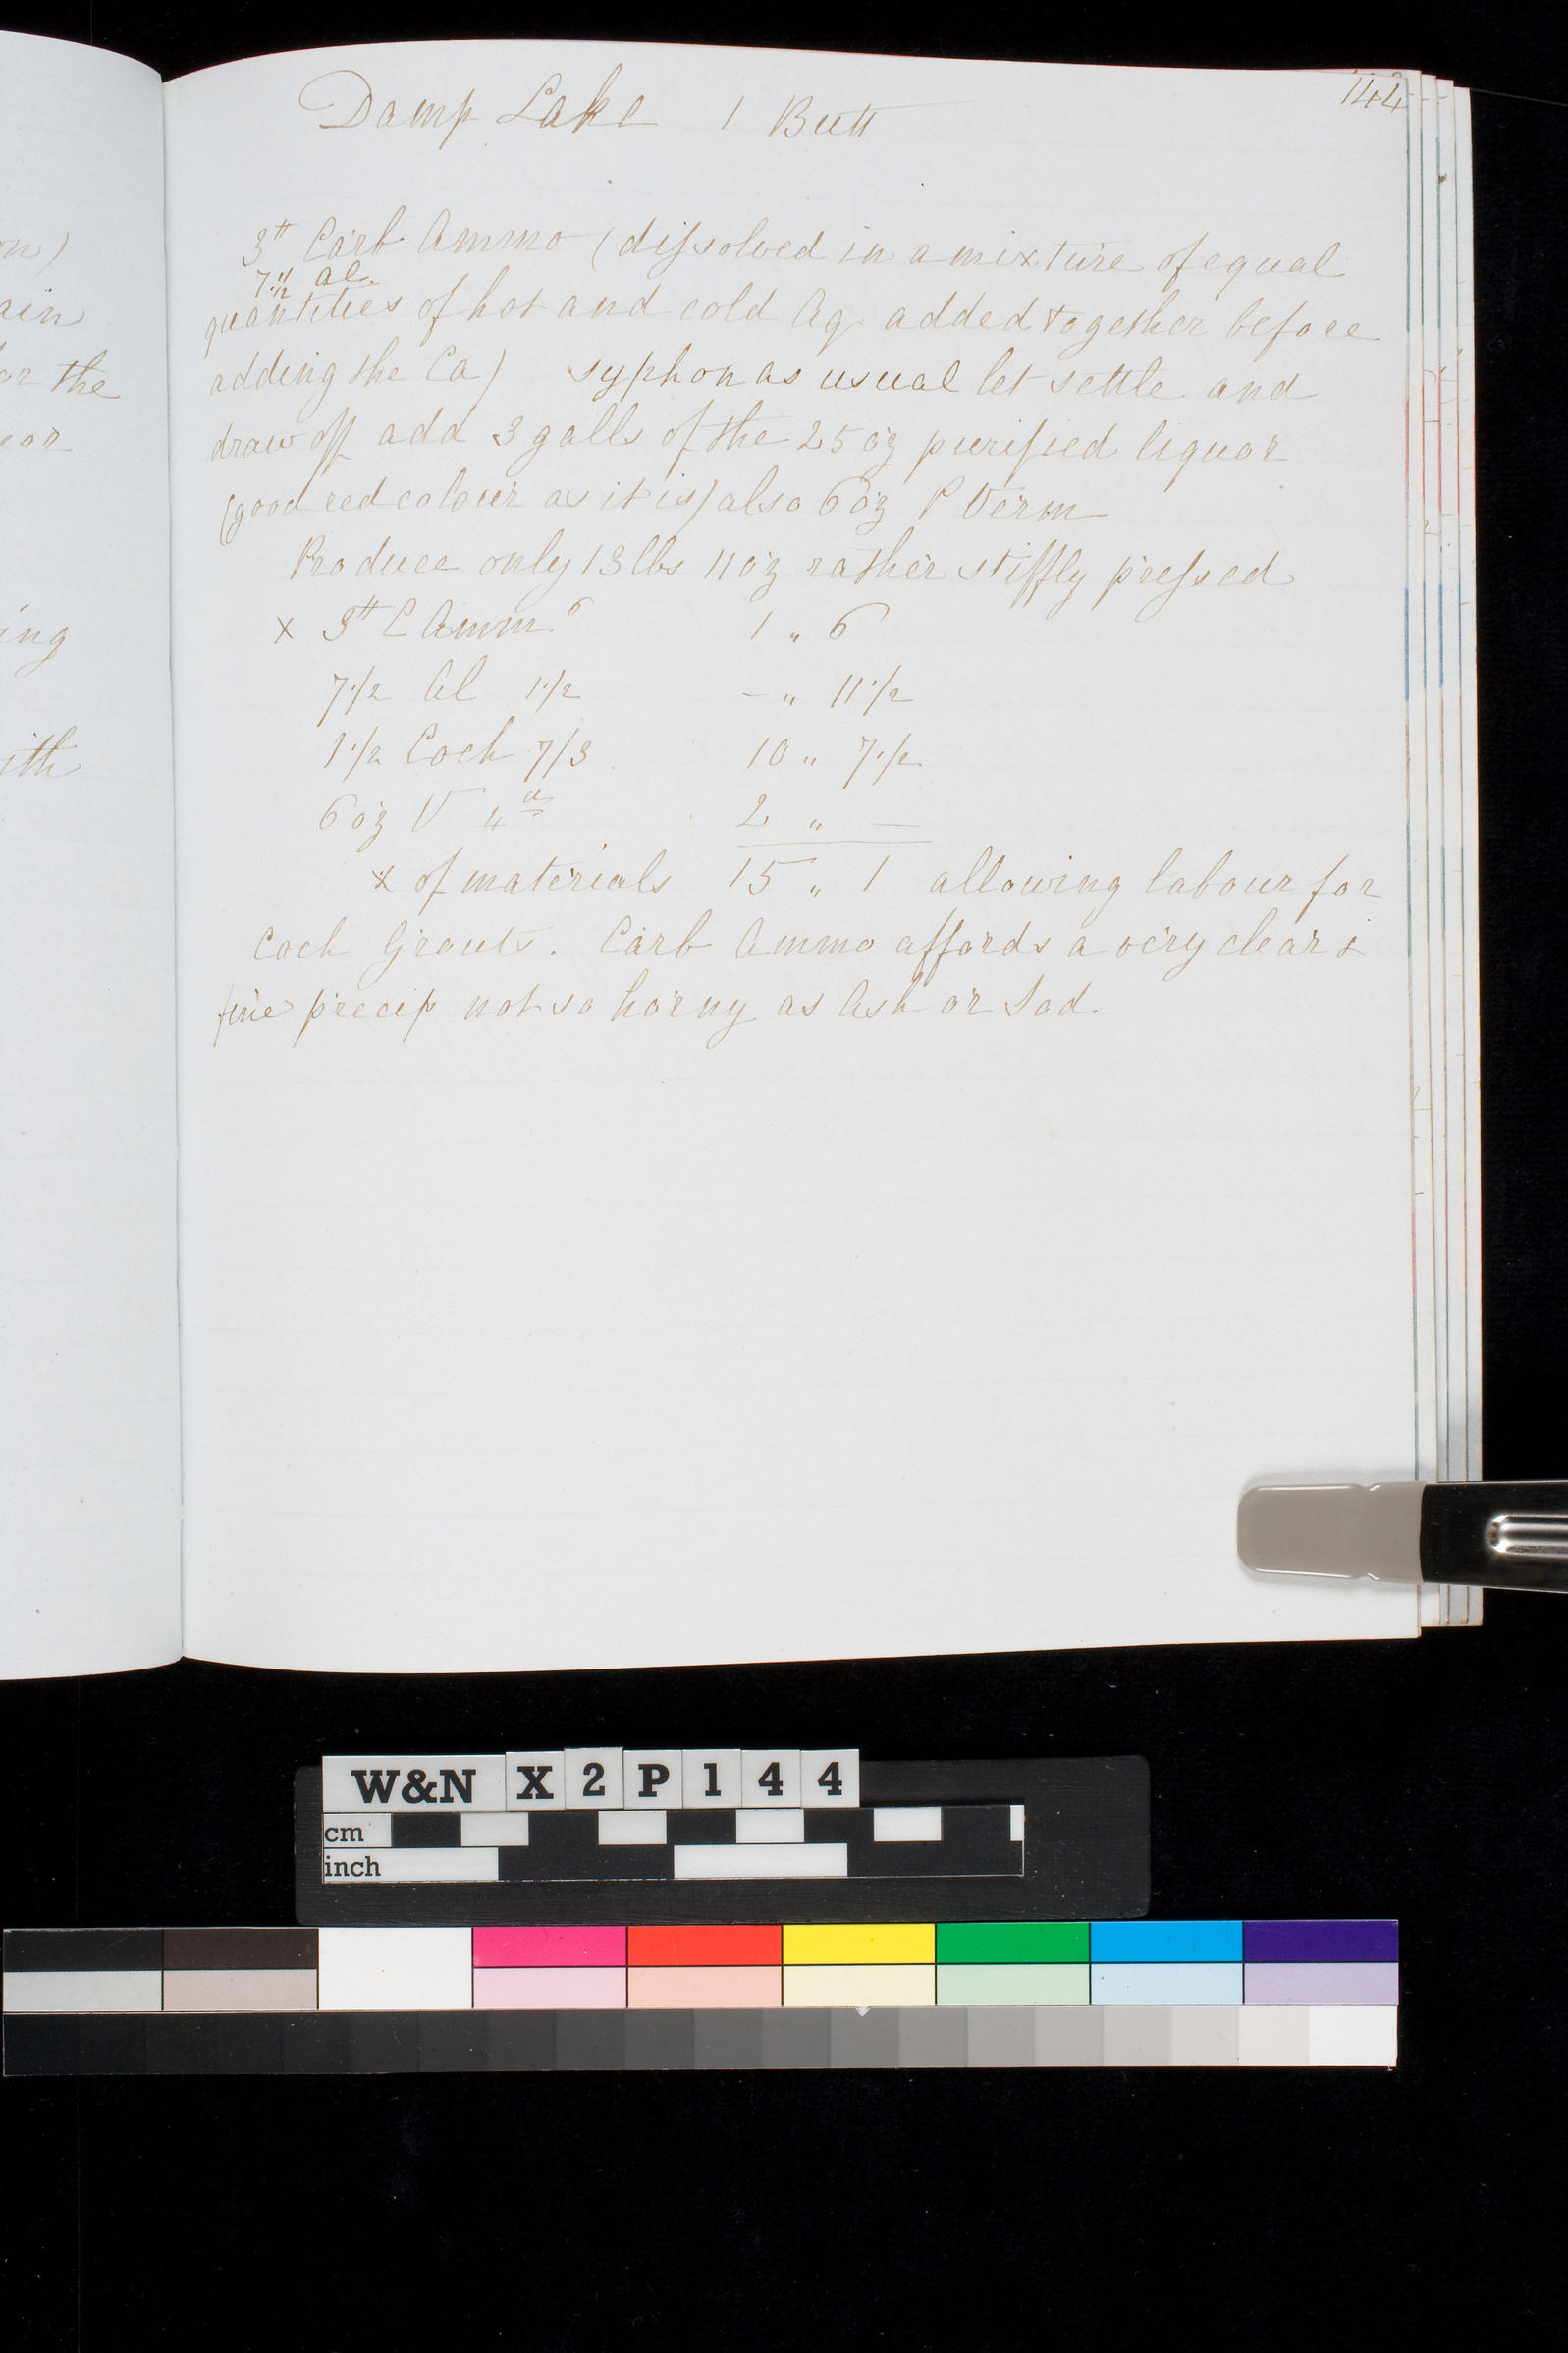 on)
ain
or the
ear
ing
ith
144
Damp Lake 1 Butt
3# Carb Ammo (dissolved in a mixture of equal
7½# al.
quantities of hot and cold Aq. added together before
adding the Ca) syphon as usual let settle and
draw off add 3 galls of the 25 oz purified liquor
(good red colour as it is) also 6 oz P Verm
Produce only 13 lbs 11 oz rather stiffly pressed
x 3# C Ammo 6 1 " 6
7½ Al 1½ – " 11½
1½ Coch 7/3 10 " 7½
6 oz V 4 2 " —
x of materials 15 " 1 allowing labour for
Coch Grouts. Carb Ammo affords a very clear &
fine precip not so horny as Ash or Sod.
W&N X2P144
cm
inch